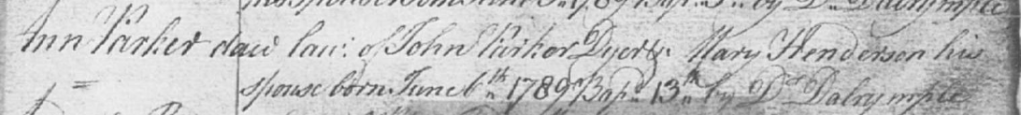 his spouse born June 5th 1789 Bapd. 5th by Dr. Dalrymple
Ann Parker daur law: of John Parker Dyer & Mary Henderson his
spouse born June 6th 1789 Bapd. 13th by Dr Dalrymple